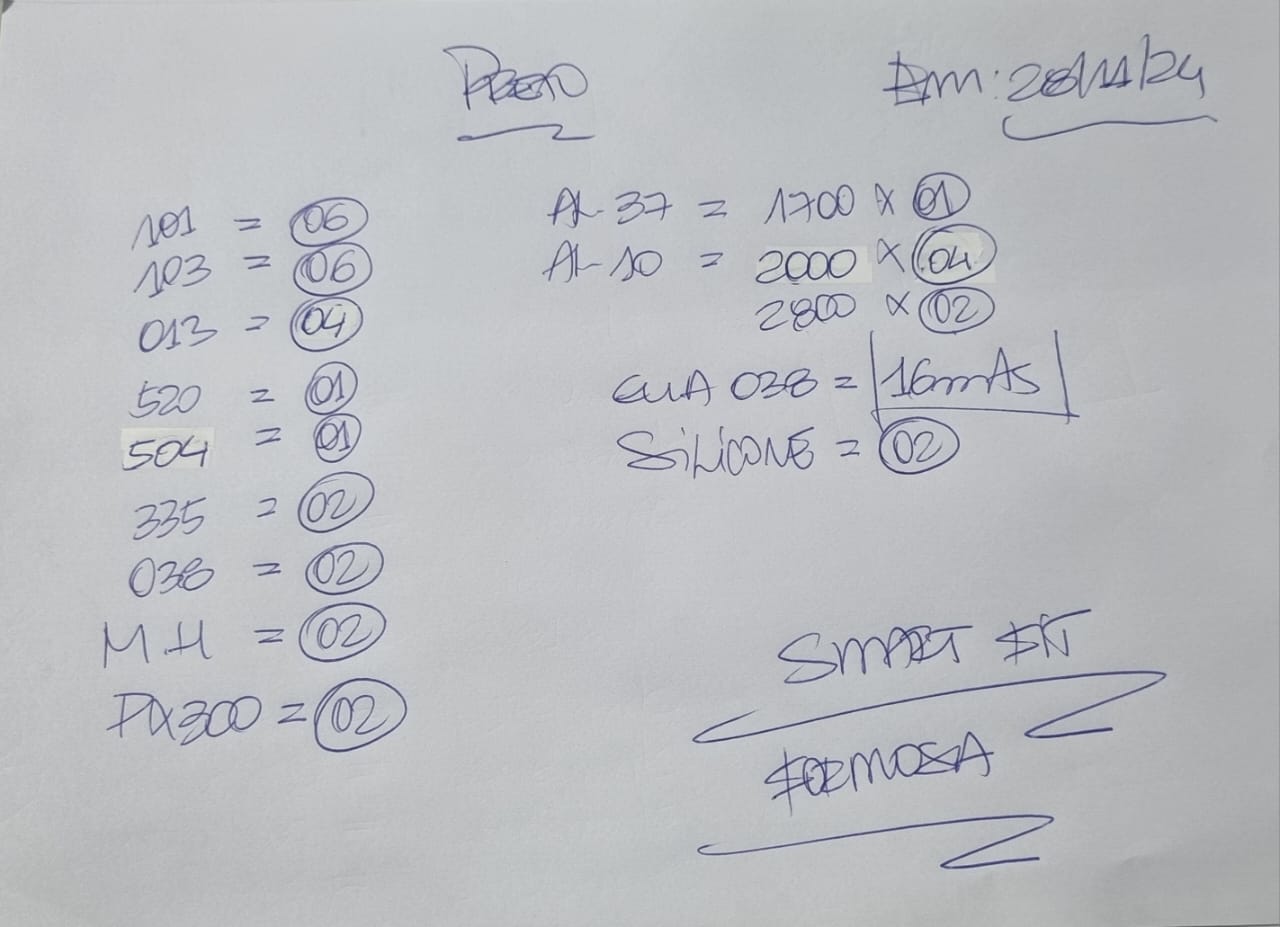 PRETO
Em: 28/11/24
101 = 06
103 = 06
013 = 04
520 = 01
504 = 01
335 = 02
038 = 02
M.H = 02
PX300 = 02
AL-37 = 1700 x 01
AL-10 = 2000 x 04
2800 x 02
GUA 038 = 16mts
SILICONE = 02
SMART
FORMOSA